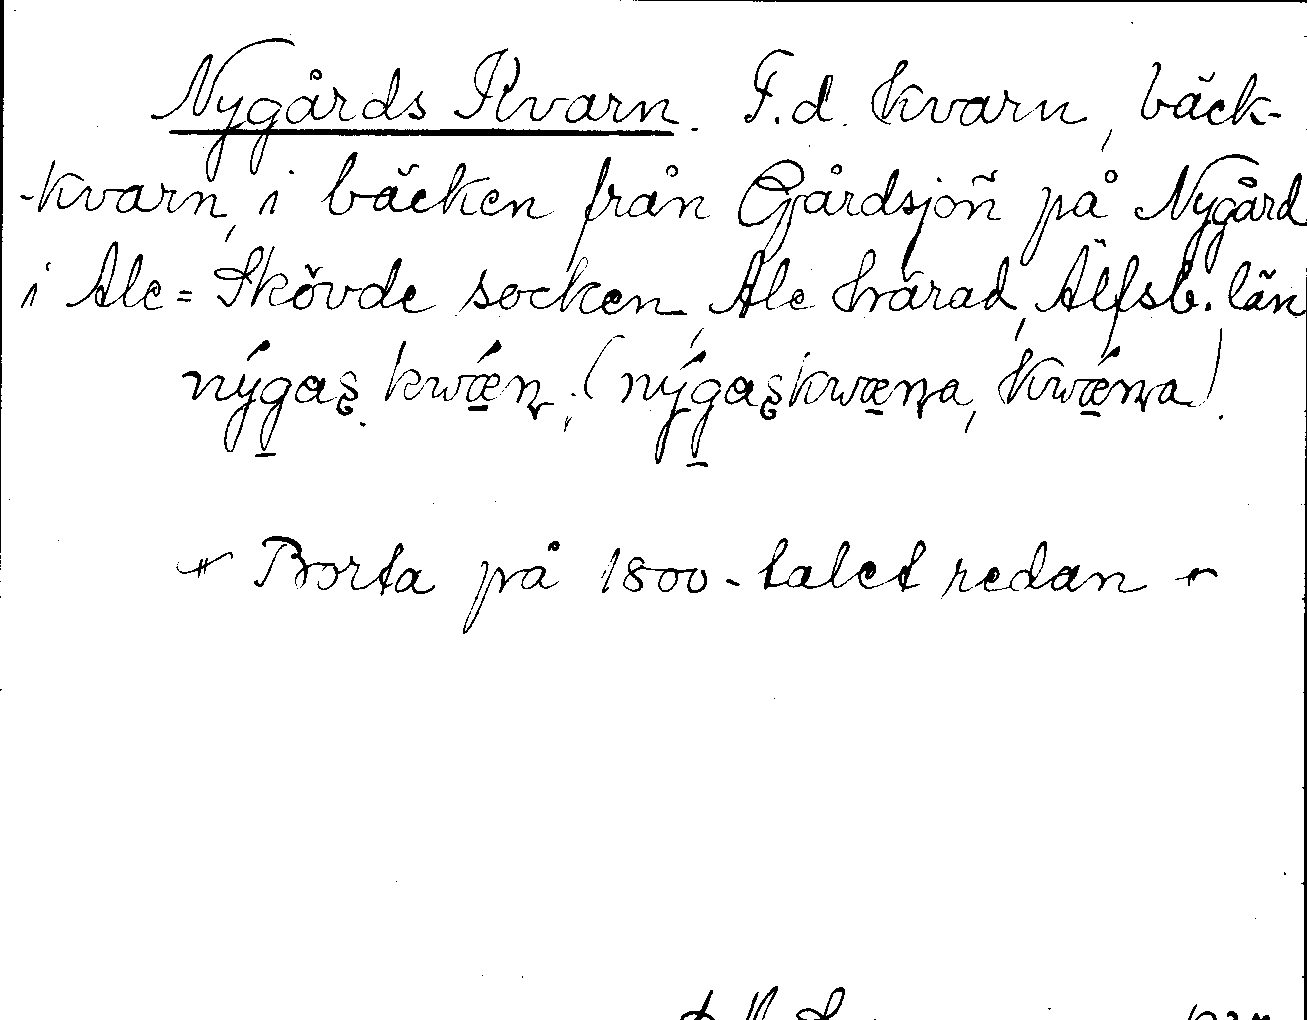 Nygårds Kvarn. F.d. kvarn, bäck-
-kvarn, i bäcken från Gårdsjön på Nygård
i Ale=Skövde socken, Ale härad, Älfsb. län
nýgas̨ kwǽn̨; (nýgas̨kwæn̨a, kwǽn̨a).
Borta på 1800-talet redan